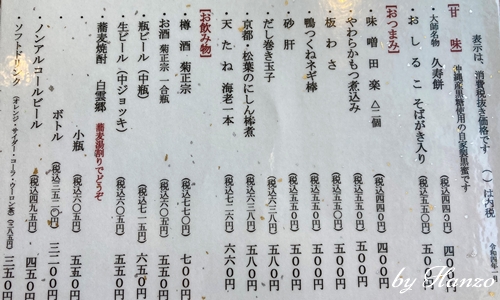 表示は、消費税抜き価格です （ ）は内税
令和四年
【甘 味】 沖縄産黒糖使用の自家製黒蜜です
大師名物 久寿餅 （税込四四〇円） 四〇〇円
・おしるこ そばがき入り （税込五五〇円） 五〇〇円
【おつまみ】
・味噌田楽 △二個 （税込四四〇円） 四〇〇円
・やわらかもつ煮込み （税込五五〇円） 五〇〇円
・板わさ （税込五五〇円） 五〇〇円
・鴨つくねネギ棒 （税込五五〇円） 五〇〇円
・砂肝 （税込五五〇円） 五〇〇円
・だし巻き玉子 （税込六三八円） 五八〇円
・京都・松葉のにしん棒煮 （税込六三八円） 五八〇円
・天たね 海老一本 （税込七二六円） 六六〇円
【お飲み物】
・樽酒 菊正宗 （税込七七〇円） 七〇〇円
・お酒 菊正宗 一合瓶 （税込六〇五円） 五五〇円
・瓶ビール（中瓶） （税込七一五円） 六五〇円
・生ビール（中ジョッキ） （税込六〇五円） 五五〇円
・蕎麦焼酎 白雲郷 蕎麦湯割りでどうぞ
小瓶 （税込六〇五円） 五五〇円
ボトル （税込三五二〇円） 三二〇〇円
・ノンアルコールビール （税込四九五円） 四五〇円
・ソフトドリンク （オレンジ・サイダー・コーラ・ウーロン茶） （三八五円） 三五〇円
by Hanzo